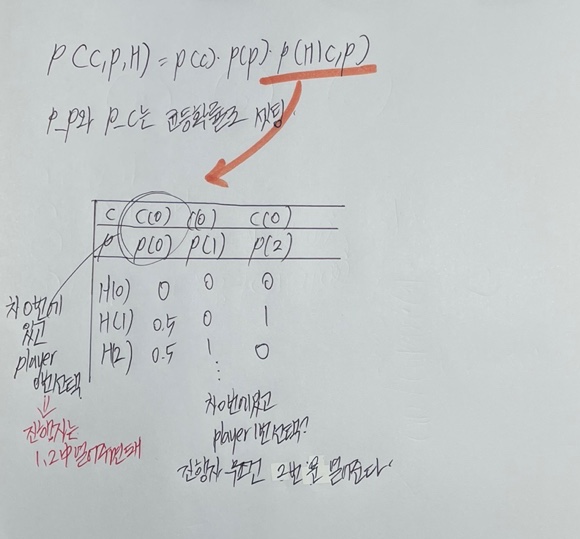 P(C,P,H) = P(C)·P(P)·P(H|C,P)
P_P와 P_C는 균등확률로 셋팅.
C C(0) C(0) C(0)
P P(0) P(1) P(2)
H(0) 0 0 0
H(1) 0.5 0 1
H(2) 0.5 1 0
⋮
차 0번에
있고
player
0번선택
⇓
진행자는
1,2中 열어주면돼
차 0번에있고
player 1번선택?
진행자 무조건 2번 문 열어준다.